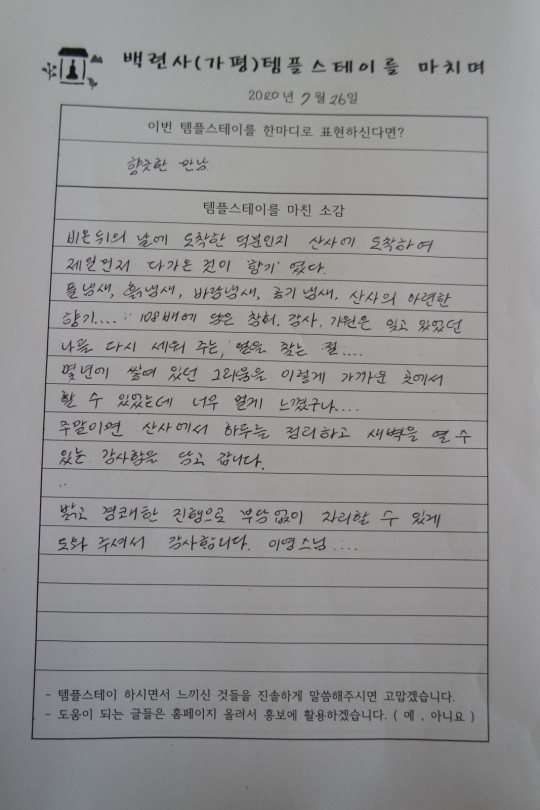 백련사(가평)템플스테이를 마치며
2020년 7월 26일
이번 템플스테이를 한마디로 표현하신다면?
향긋한 만남
템플스테이를 마친 소감
비온뒤의 날에 도착한 덕분인지 산사에 도착하여
제일먼저 다가온 것이 '향기' 였다.
풀냄새, 흙냄새, 바람냄새, 공기 냄새, 산사의 아련한
향기.... 108배에 담은 참회, 감사, 기원은 잊고 있었던
나를 다시 세워 주는, 얼을 찾는 절....
몇년에 쌓여 있던 그리움을 이렇게 가까운 곳에서
할 수 있었는데 너무 멀게 느꼈구나....
주말이면 산사에서 하루를 정리하고 새벽을 열 수
있는 감사함을 담고 갑니다.
..
밝고 경쾌한 진행으로 부담없이 자리할 수 있게
도와 주셔서 감사합니다. 스님....
- 템플스테이 하시면서 느끼신 것들을 진솔하게 말씀해주시면 고맙겠습니다.
- 도움이 되는 글들은 홈페이지 올려서 홍보에 활용하겠습니다. ( 예 , 아니요 )